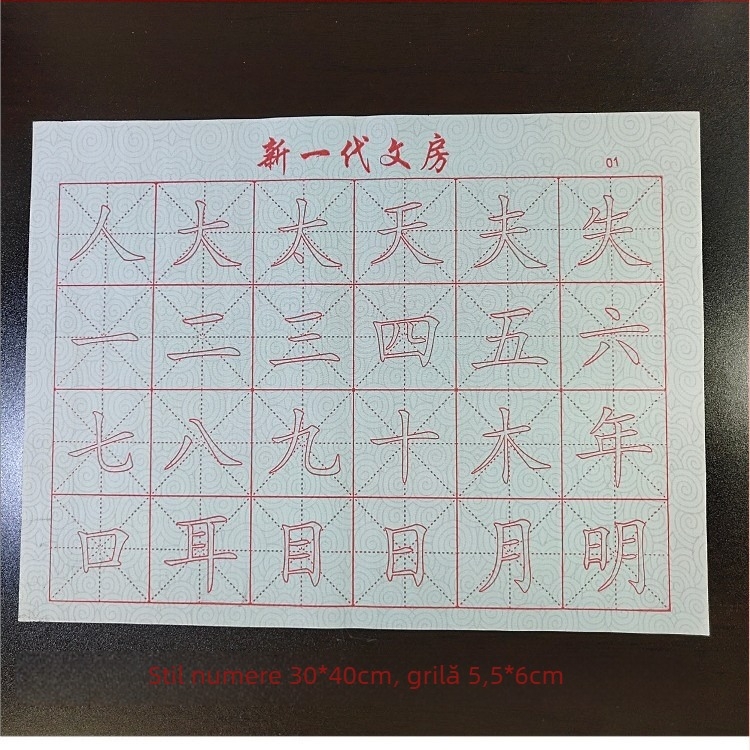 新一代文房
01
人大太天夫失
一二三四五六
七八九十木年
口耳目日月明
Stil numere 30*40cm, grilă 5,5*6cm